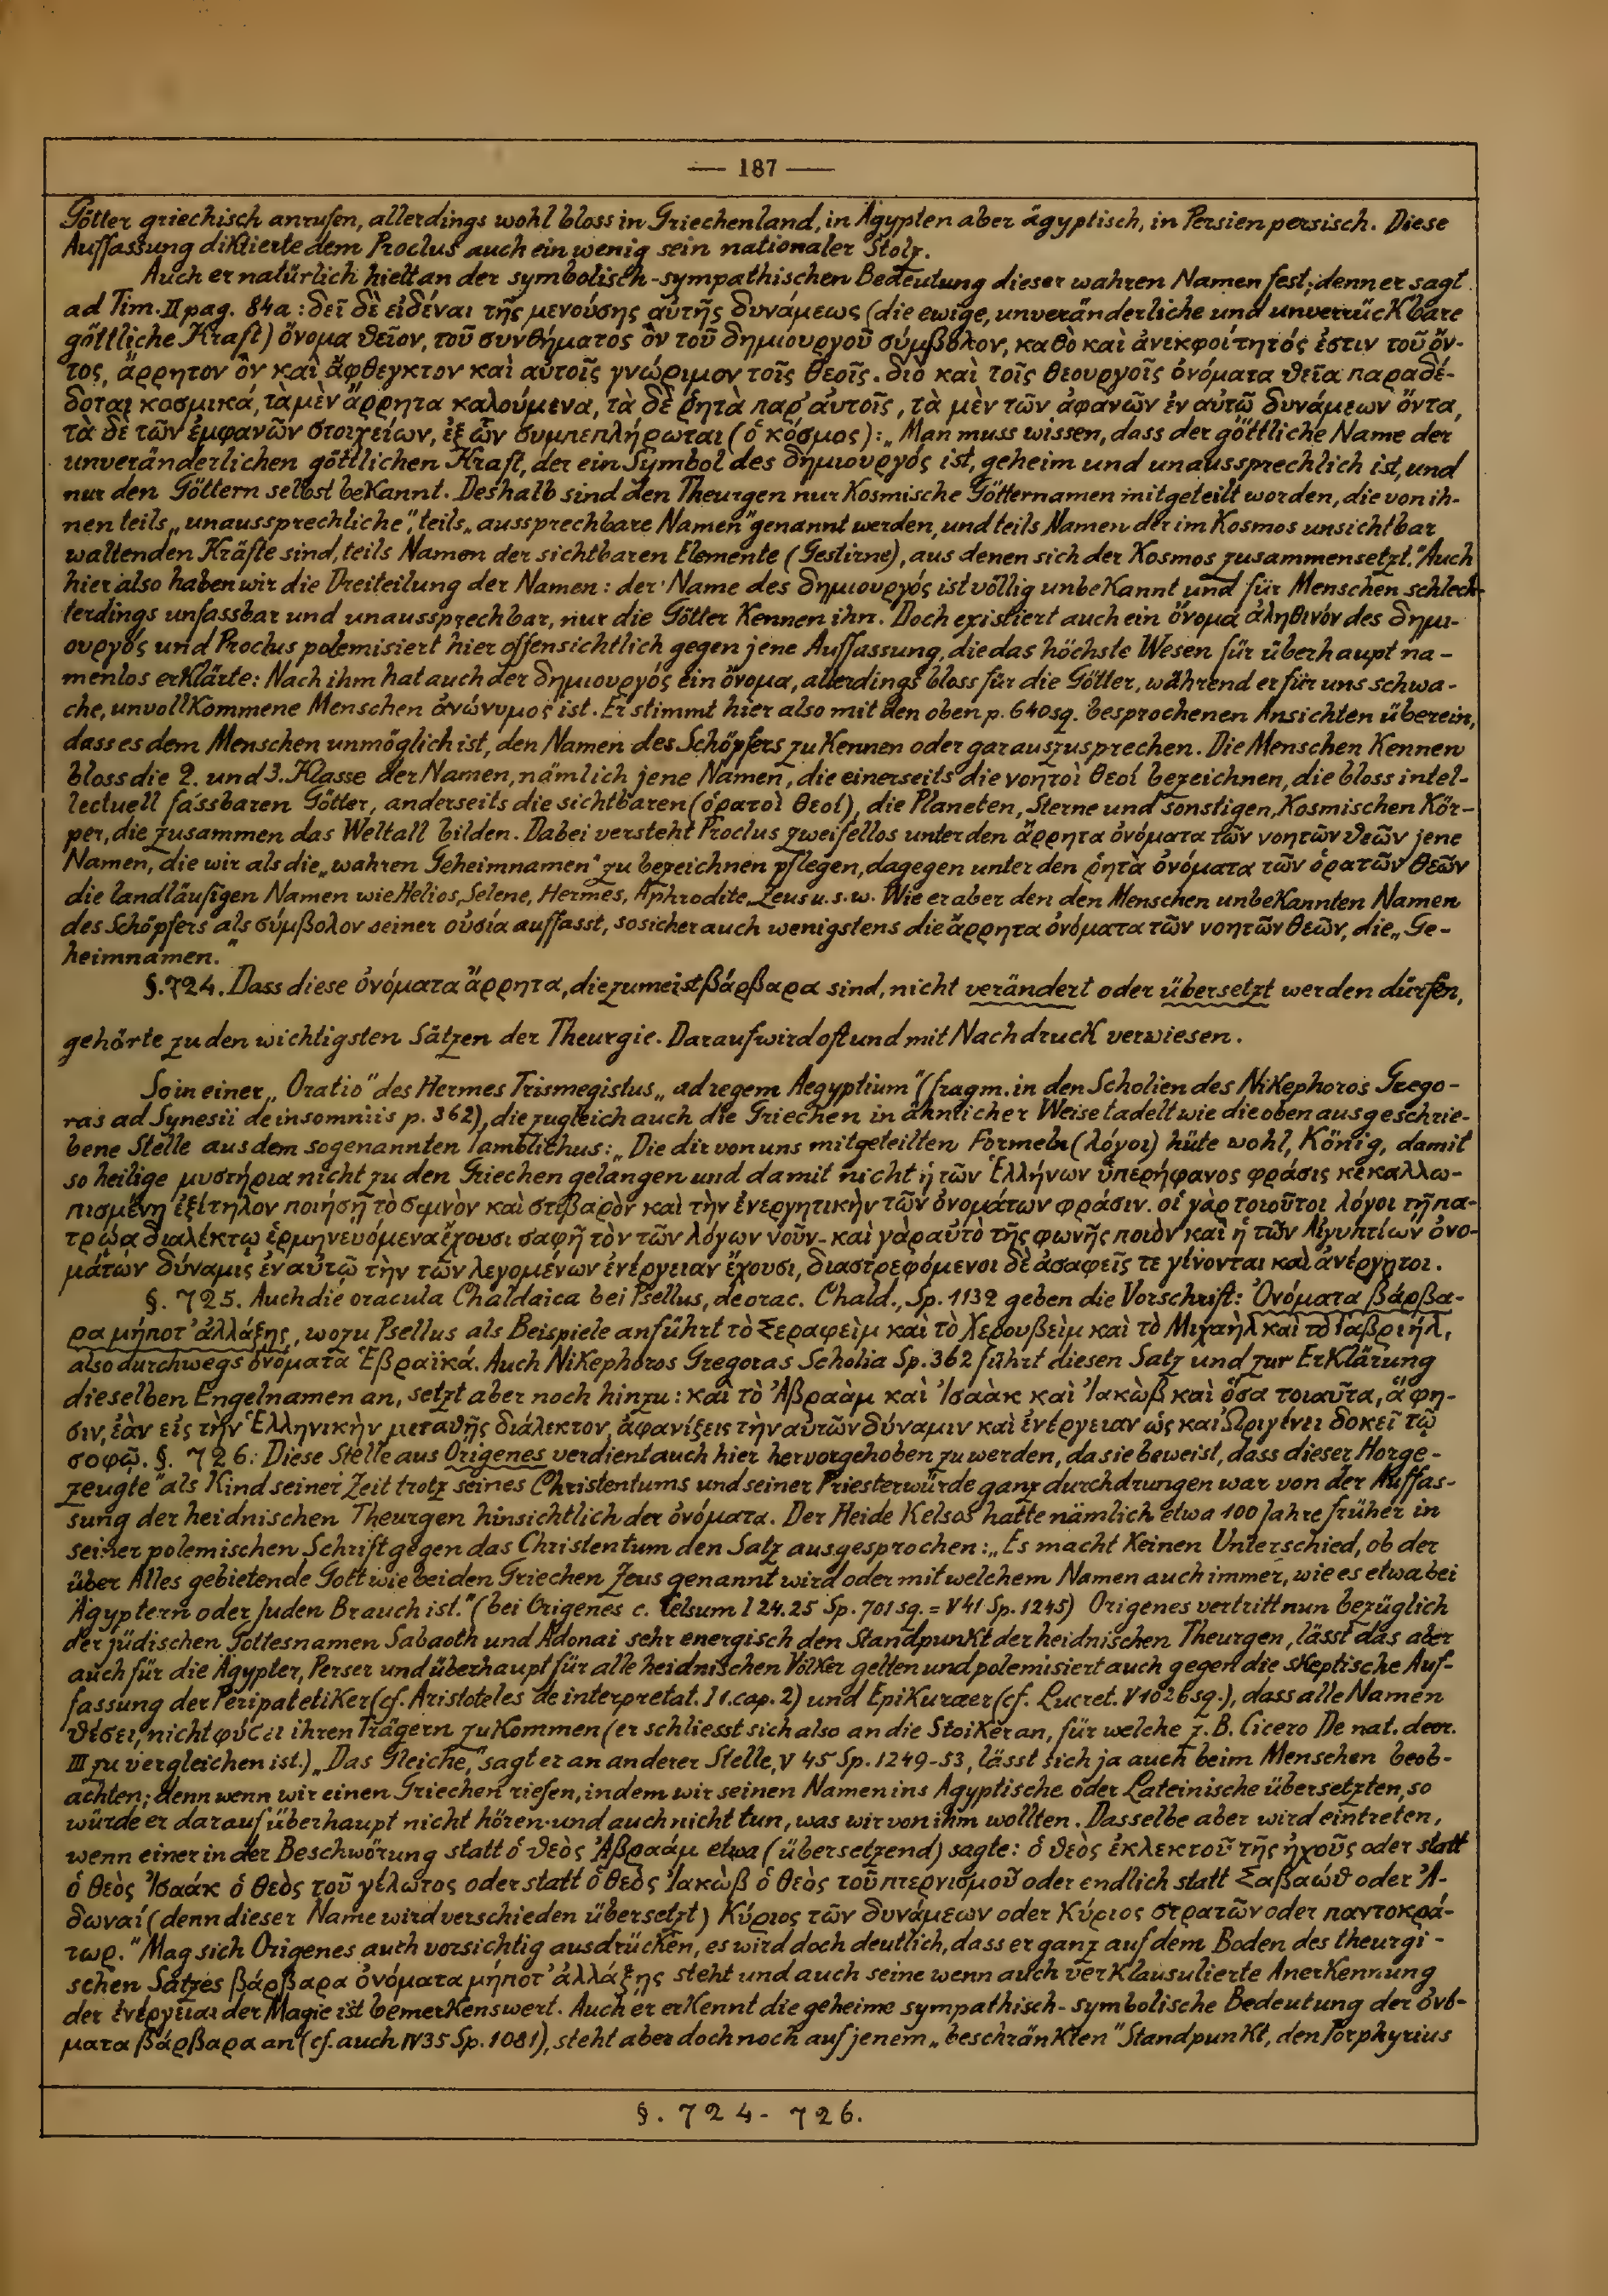 — 187 —
Götter griechisch anrufen, allerdings wohl bloss in Griechenland, in Ägypten aber ägyptisch, in Persien persisch. Diese
Auffassung diktierte dem Proclus auch ein wenig sein nationaler Stolz.
Auch er natürlich hielt an der symbolisch-sympathischen Bedeutung dieser wahren Namen fest; denn er sagt
ad Tim. II pag. 84a: δεῖ δὲ εἰδέναι τῆς μενούσης αὐτῆς δυνάμεως (die ewige, unveränderliche und unverrückbare
göttliche Kraft) ὄνομα θεῖον, τοῦ συνθήματος ὂν τοῦ δημιουργοῦ σύμβολον, καθὸ καὶ ἀνεκφοίτητός ἐστιν τοῦ ὄν-
τος, ἄρρητον ὂν καὶ ἄφθεγκτον καὶ αὐτοῖς γνώριμον τοῖς θεοῖς. διὸ καὶ τοῖς θεουργοῖς ὀνόματα θεῖα παραδέ-
δοται κοσμικά, τὰ μὲν ἄρρητα καλούμενα, τὰ δὲ ῥητὰ παρ' αὐτοῖς, τὰ μὲν τῶν ἀφανῶν ἐν αὐτῷ δυνάμεων ὄντα,
τὰ δὲ τῶν ἐμφανῶν στοιχείων, ἐξ ὧν συμπεπλήρωται (ὁ κόσμος): „Man muss wissen, dass der göttliche Name der
unveränderlichen göttlichen Kraft, der ein Symbol des δημιουργός ist, geheim und unaussprechlich ist, und
nur den Göttern selbst bekannt. Deshalb sind den Theurgen nur kosmische Götternamen mitgeteilt worden, die von ih-
nen teils „unaussprechliche", teils „aussprechbare Namen" genannt werden, und teils Namen der im Kosmos unsichtbar
waltenden Kräfte sind, teils Namen der sichtbaren Elemente (Gestirne), aus denen sich der Kosmos zusammensetzt." Auch
hier also haben wir die Dreiteilung der Namen: der Name des δημιουργός ist völlig unbekannt und für Menschen schlech-
terdings unfassbar und unaussprechbar, nur die Götter kennen ihn. Doch existiert auch ein ὄνομα ἀληθινόν des δημι-
ουργός und Proclus polemisiert hier offensichtlich gegen jene Auffassung, die das höchste Wesen für überhaupt na-
menlos erklärte: Nach ihm hat auch der δημιουργός ein ὄνομα, allerdings bloss für die Götter, während er für uns schwa-
che, unvollkommene Menschen ἀνώνυμος ist. Er stimmt hier also mit den oben p. 640 sq. besprochenen Ansichten überein,
dass es dem Menschen unmöglich ist, den Namen des Schöpfers zu kennen oder gar auszusprechen. Die Menschen kennen
bloss die 2. und 3. Klasse der Namen, nämlich jene Namen, die einerseits die νοητοὶ θεοί bezeichnen, die bloss intel-
lectuell fassbaren Götter, anderseits die sichtbaren (ὁρατοὶ θεοί), die Planeten, Sterne und sonstigen, kosmischen Kör-
per, die zusammen das Weltall bilden. Dabei versteht Proclus zweifellos unter den ἄρρητα ὀνόματα τῶν νοητῶν θεῶν jene
Namen, die wir als die „wahren Geheimnamen" zu bezeichnen pflegen, dagegen unter den ῥητὰ ὀνόματα τῶν ὁρατῶν θεῶν
die landläufigen Namen wie Helios, Selene, Hermes, Aphrodite, Zeus u.s.w. Wie er aber den den Menschen unbekannten Namen
des Schöpfers als σύμβολον seiner οὐσία auffasst, so sicher auch wenigstens die ἄρρητα ὀνόματα τῶν νοητῶν θεῶν, die „Ge-
heimnamen."
§. 724. Dass diese ὀνόματα ἄρρητα, die zumeist βάρβαρα sind, nicht verändert oder übersetzt werden dürfen,
gehörte zu den wichtigsten Sätzen der Theurgie. Darauf wird oft und mit Nachdruck verwiesen.
So in einer „Oratio" des Hermes Trismegistus „ad regem Aegyptium" (fragm. in den Scholien des Nikephoros Grego-
ras ad Synesii de insomniis p. 362), die zugleich auch die Griechen in ähnlicher Weise tadelt wie die oben ausgeschrie-
bene Stelle aus dem sogenannten Iamblichus: „Die dir von uns mitgeteilten Formeln (λόγοι) hüte wohl, König, damit
so heilige μυστήρια nicht zu den Griechen gelangen und damit nicht ἡ τῶν Ἑλλήνων ὑπερήφανος φράσις κεκαλλω-
πισμένη ἐξίτηλον ποιήσῃ τὸ σεμνὸν καὶ στιβαρὸν καὶ τὴν ἐνεργητικὴν τῶν ὀνομάτων φράσιν. οἱ γὰρ τοιοῦτοι λόγοι τῇ πα-
τρῴᾳ διαλέκτῳ ἑρμηνευόμενα ἔχουσι σαφῆ τὸν τῶν λόγων νοῦν - καὶ γὰρ αὐτὸ τῆς φωνῆς ποιὸν καὶ ἡ τῶν Αἰγυπτίων ὀνο-
μάτων δύναμις ἐν αὐτῷ τὴν τῶν λεγομένων ἐνέργειαν ἔχουσι, διαστρεφόμενοι δὲ ἀσαφεῖς τε γίνονται καὶ ἀνέργητοι.
§. 725. Auch die oracula Chaldaica bei Psellus, de orac. Chald., Sp. 1132 geben die Vorschrift: Ὀνόματα βάρβα-
ρα μήποτ' ἀλλάξῃς, wozu Psellus als Beispiele anführt τὸ Σεραφεὶμ καὶ τὸ Χερουβεὶμ καὶ τὸ Μιχαὴλ καὶ τὸ Γαβριήλ,
also durchwegs ὀνόματα Ἑβραϊκά. Auch Nikephoros Gregoras Scholia Sp. 362 führt diesen Satz und zur Erklärung
dieselben Engelnamen an, setzt aber noch hinzu: καὶ τὸ Ἀβραὰμ καὶ Ἰσαὰκ καὶ Ἰακὼβ καὶ ὅσα τοιαῦτα, ἅ φη-
σιν, ἐὰν εἰς τὴν Ἑλληνικὴν μεταθῇς διάλεκτον, ἀφανίξεις τὴν αὐτῶν δύναμιν καὶ ἐνέργειαν ὡς καὶ Ὠριγένει δοκεῖ τῷ
σοφῷ. §. 726: Diese Stelle aus Origenes verdient auch hier hervorgehoben zu werden, da sie beweist, dass dieser „Horge-
zeugte" als Kind seiner Zeit trotz seines Christentums und seiner Priesterwürde ganz durchdrungen war von der Auffas-
sung der heidnischen Theurgen hinsichtlich der ὀνόματα. Der Heide Kelsos hatte nämlich etwa 100 Jahre früher in
seiner polemischen Schrift gegen das Christentum den Satz ausgesprochen: „Es macht keinen Unterschied, ob der
über Alles gebietende Gott wie bei den Griechen Zeus genannt wird oder mit welchem Namen auch immer, wie es etwa bei
Ägyptern oder Juden Brauch ist." (bei Origenes c. Celsum I 24.25 Sp. 701 sq. = V 41 Sp. 1245) Origenes vertritt nun bezüglich
der jüdischen Gottesnamen Sabaoth und Adonai sehr energisch den Standpunkt der heidnischen Theurgen, lässt das aber
auch für die Ägypter, Perser und überhaupt für alle heidnischen Völker gelten und polemisiert auch gegen die skeptische Auf-
fassung der Peripatetiker (cf. Aristoteles de interpretat. I 1. cap. 2) und Epikuraeer (cf. Lucret. V 1026 sq.), dass alle Namen
θέσει, nicht φύσει ihren Trägern zukommen (er schliesst sich also an die Stoiker an, für welche z.B. Cicero De nat. deor.
III zu vergleichen ist.) „Das Gleiche," sagt er an anderer Stelle, V 45 Sp. 1249-53, lässt sich ja auch beim Menschen beob-
achten; denn wenn wir einen Griechen riefen, indem wir seinen Namen ins Ägyptische oder Lateinische übersetzten, so
würde er darauf überhaupt nicht hören und auch nicht tun, was wir von ihm wollten. Dasselbe aber wird eintreten,
wenn einer in der Beschwörung statt ὁ θεὸς Ἀβραάμ etwa (übersetzend) sagte: ὁ θεὸς ἐκλεκτοῦ τῆς ἠχοῦς oder statt
ὁ θεὸς Ἰσαάκ ὁ θεὸς τοῦ γέλωτος oder statt ὁ θεὸς Ἰακὼβ ὁ θεὸς τοῦ πτερνισμοῦ oder endlich statt Σαβαώθ oder Ἀ-
δωναί (denn dieser Name wird verschieden übersetzt) Κύριος τῶν δυνάμεων oder Κύριος στρατῶν oder παντοκρά-
τωρ." Mag sich Origenes auch vorsichtig ausdrücken, es wird doch deutlich, dass er ganz auf dem Boden des theurgi-
schen Satzes βάρβαρα ὀνόματα μήποτ' ἀλλάξῃς steht und auch seine wenn auch verklausulierte Anerkennung
der ἐνέργειαι der Magie ist bemerkenswert. Auch er erkennt die geheime sympathisch-symbolische Bedeutung der ὀνό-
ματα βάρβαρα an (cf. auch IV 35 Sp. 1081), steht aber doch noch auf jenem „beschränkten" Standpunkt, den Porphyrius
§. 724- 726.